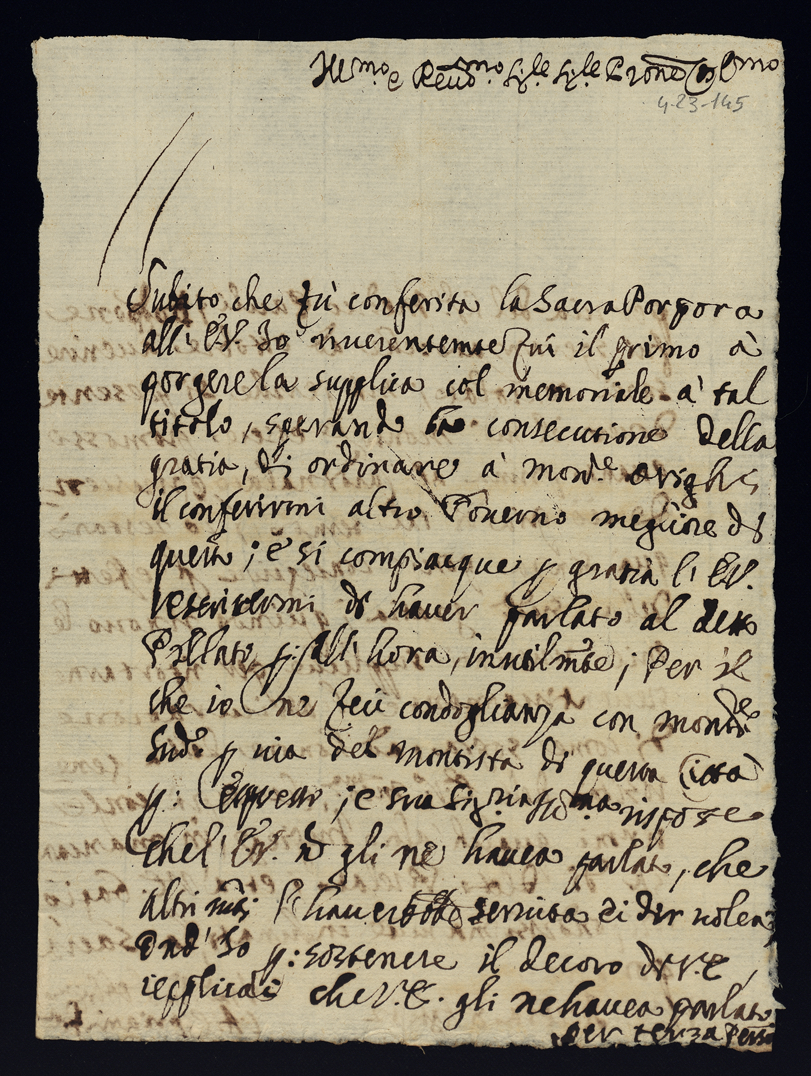 Ill.mo e Reud.mo Sig.re Sig.re Prone Col.mo
4-23-145
Subito che fù conferita la Sacra Porpora
all' E.V. Io riuerentemente fui il primo à
porgere la supplica col memoriale à tal
titolo, sperando la consecutione della
gratia, di ordinare à Mons.re Orighi
il conferirmi altro Gouerno megliore di
questo; e si compiacque p gratia l' E.V.
rescriuermi di hauer parlato al detto
Prellato, p: all' hora, inutilmte; Per il
che io ne feci condoglianza con Mons.re
Sud.o p uia del Montista di questa Città
p: ; e sua Sig.ria Ill.ma rispose
che l' E.V. nõ gli ne hauea parlato, che
altrimti l' hauerebbe seruita di
Ond' Io p: sostenere il decoro di V.E,
replicai che V.E. gli ne hauea parlato
per terza Perso